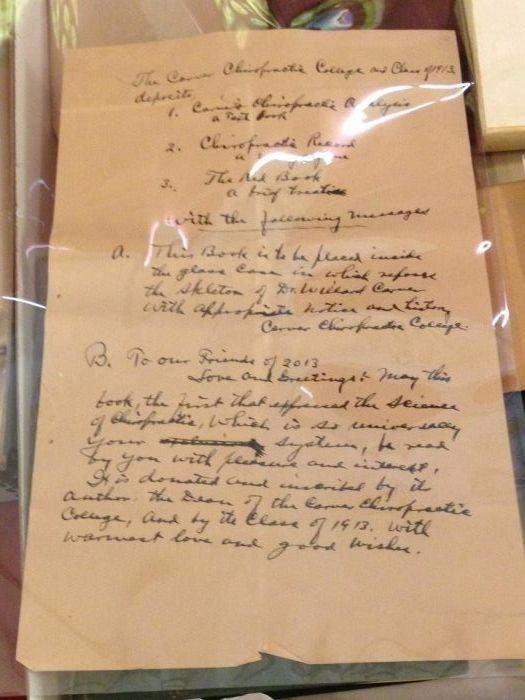 The Carver Chiropractic College and Class of 1913
deposits
1. Carver's Chiropractic Analysis
a Text Book
2. Chiropractic Record
a
3. The Red Book
a brief treatise
With the following messages
A. This Book is to be placed inside
the glass Case in which reposes
the skeleton of Dr. Willard Carver
with appropriate notice and history
Carver Chiropractic College.
B. To our Friends of 2013
Love and Greetings! May this
book, the first that expressed the science
of Chiropractic, which is so universally
your system, be read
by you with pleasure and interest.
It is donated and inscribed by its
author. the Dean of the Carver Chiropractic
College, and by its Class of 1913. With
warmest love and good wishes.